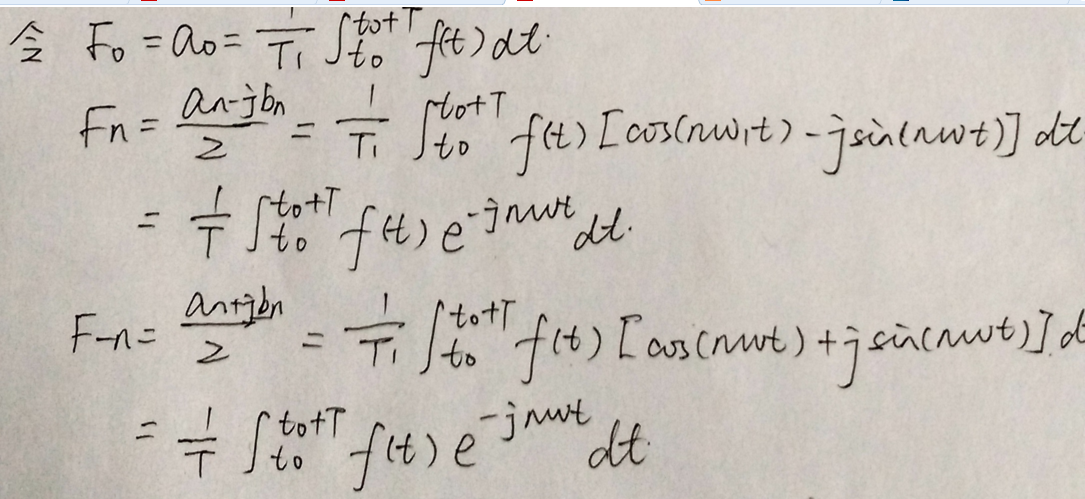 令 F₀ = a₀ = 1/T₁ ∫_{t₀}^{t₀+T} f(t) dt.
Fn = (an-jbn)/2 = 1/T₁ ∫_{t₀}^{t₀+T} f(t) [cos(nω₁t) - j sin(nωt)] dt
= 1/T ∫_{t₀}^{t₀+T} f(t) e^{-jnωt} dt.
F-n = (an+jbn)/2 = 1/T₁ ∫_{t₀}^{t₀+T} f(t) [cos(nωt) + j sin(nωt)] d
= 1/T ∫_{t₀}^{t₀+T} f(t) e^{-jnωt} dt